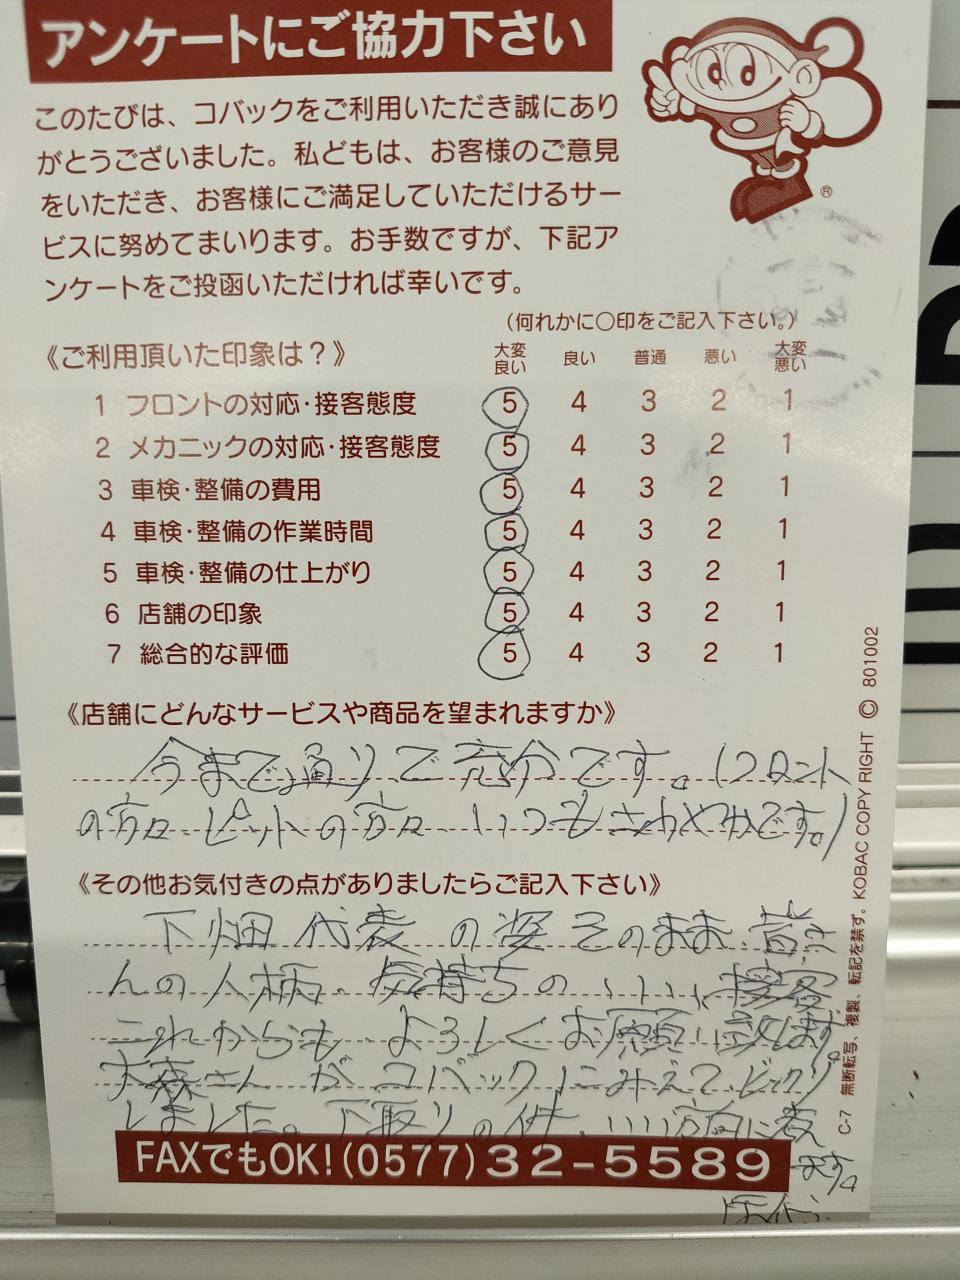 アンケートにご協力下さい
このたびは、コバックをご利用いただき誠にあり
がとうございました。私どもは、お客様のご意見
をいただき、お客様にご満足していただけるサー
ビスに努めてまいります。お手数ですが、下記ア
ンケートをご投函いただければ幸いです。
®
(何れかに○印をご記入下さい。)
《ご利用頂いた印象は?》 大変良い 良い 普通 悪い 大変悪い
1 フロントの対応・接客態度 5 4 3 2 1
2 メカニックの対応・接客態度 5 4 3 2 1
3 車検・整備の費用 5 4 3 2 1
4 車検・整備の作業時間 5 4 3 2 1
5 車検・整備の仕上がり 5 4 3 2 1
6 店舗の印象 5 4 3 2 1
7 総合的な評価 5 4 3 2 1
《店舗にどんなサービスや商品を望まれますか》
今まで通りで充分です。(フロント
の方々、ピットの方々、いつもさわやかです。)
《その他お気付きの点がありましたらご記入下さい》
下畑代表の姿そのまま、皆さ
んの人柄、気持ちのいい、接客
これからも、よろしくお願い致します。
大森さんがコバックにみえて、ビックリ
しました。下取りの件、いい方向に
ます。
FAXでもOK!(0577)32-5589
C-7 無断転写、複製、転記を禁ず。KOBAC COPY RIGHT © 801002